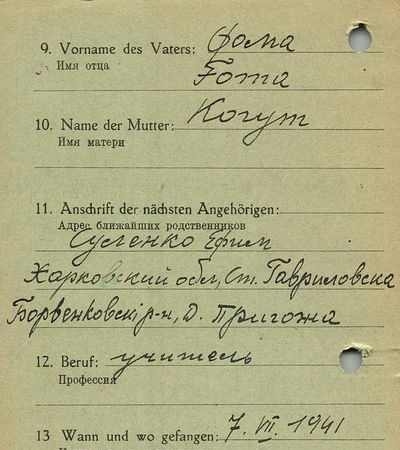 9. Vorname des Vaters: Фома
Имя отца
Foma
10. Name der Mutter: Когут
Имя матери
11. Anschrift der nächsten Angehörigen:
Адрес ближайших родственников
Сусленко Ефим
Харковский обл, Ст. Гавриловска
Борвенковскі р-н, д. Пригожа
12. Beruf: учитель
Профессия
13 Wann und wo gefangen: 7. VII. 1941